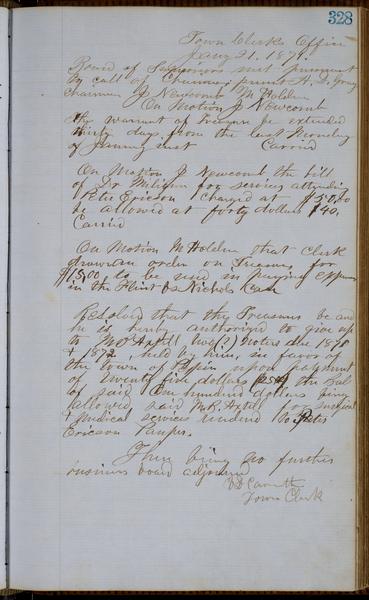 328
Town Clerks Office
Jany 21. 1871.
Board of Supervisors met pursuant
by call of Chairman present A. D. Gray
Chairman J Newcomb M Holden
On Motion J Newcomb
the warrant of Treasurer be extended
thirty days from the last Monday
of January inst Carried
On Motion J Newcomb the bill
of Dr Milligan for services attending
Peter Ericson charged at $50.00
be allowed at forty dollars $40.
Carried
On Motion M Holden that clerk
draw an order on Treasurer for
$15.00 to be used in paying expenses
in the Flint & Nichols Case
Resolved that the Treasurer be and
he is hereby authorized to give up
to M. Axtell two (2) notes due 1870
& 1872, held by him, in favor of
the town of upon payment
of twenty five dollars $25.00, the bal
of said one hundred dollars being
allowed said M.R. Axtell for surgical
& medical services rendered to Peter
Ericson Pauper.
There being no further
business board adjourned
Town Clerk